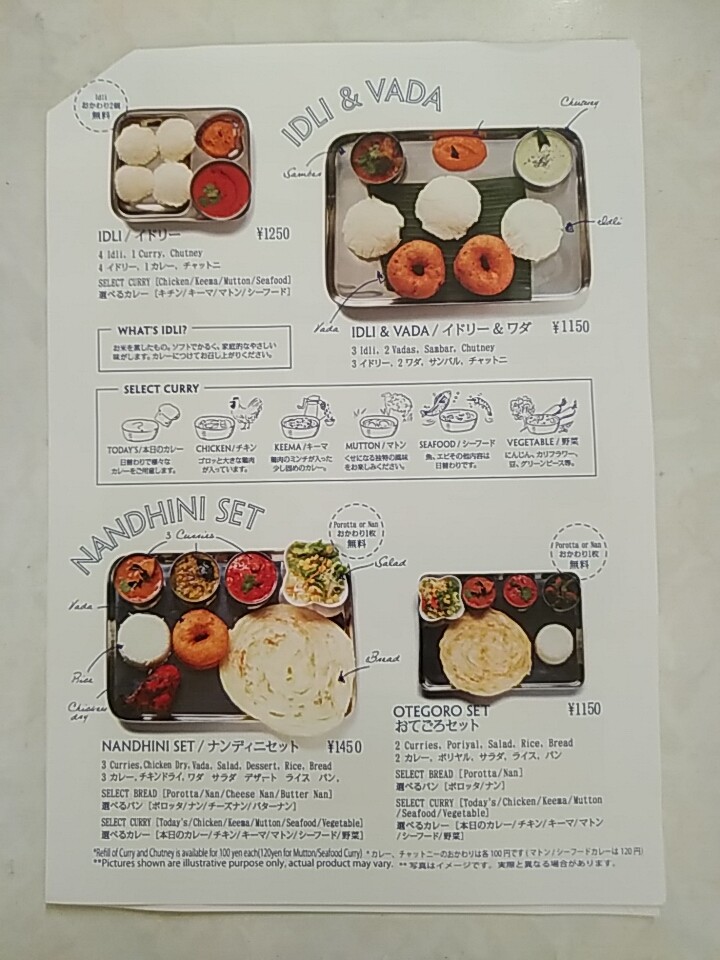 Idli
おかわり2個
無料
IDLI & VADA
Chutney
Sambar
Idli
Vada
IDLI / イドリー ¥1250
4 Idli, 1 Curry, Chutney
4 イドリー、1 カレー、チャットニ
SELECT CURRY [Chicken/Keema/Mutton/Seafood]
選べるカレー [キチン/キーマ/マトン/シーフード]
IDLI & VADA / イドリー & ワダ ¥1150
3 Idli, 2 Vadas, Sambar, Chutney
3 イドリー、2 ワダ、サンバル、チャットニ
WHAT'S IDLI?
お米を蒸したもの。ソフトでかるく、家庭的なやさしい
味がします。カレーにつけてお召し上がりください。
SELECT CURRY
TODAY'S/本日のカレー
日替わりで様々な
カレーをご用意します。
CHICKEN/チキン
ゴロッと大きな鶏肉
が入っています。
KEEMA/キーマ
鶏肉のミンチが入った
少し固めのカレー。
MUTTON/マトン
くせになる独特の風味
をお楽しみください。
SEAFOOD/シーフード
魚、エビその他内容は
日替わりです。
VEGETABLE/野菜
にんじん、カリフラワー、
豆、グリーンピース等。
NANDHINI SET
3 Curries
Porotta or Nan
おかわり1枚
無料
Salad
Vada
Rice
Chicken
dry
Bread
Porotta or Nan
おかわり1枚
無料
NANDHINI SET / ナンディニセット ¥1450
3 Curries, Chicken Dry, Vada, Salad, Dessert, Rice, Bread
3 カレー、チキンドライ、ワダ サラダ デザート ライス パン、
SELECT BREAD [Porotta/Nan/Cheese Nan/Butter Nan]
選べるパン [ポロッタ/ナン/チーズナン/バターナン]
SELECT CURRY [Today's/Chicken/Keema/Mutton/Seafood/Vegetable]
選べるカレー [本日のカレー/チキン/キーマ/マトン/シーフード/野菜]
OTEGORO SET ¥1150
おてごろセット
2 Curries, Poriyal, Salad, Rice, Bread
2 カレー、ポリヤル、サラダ、ライス、パン
SELECT BREAD [Porotta/Nan]
選べるパン [ポロッタ/ナン]
SELECT CURRY [Today's/Chicken/Keema/Mutton
/Seafood/Vegetable]
選べるカレー [本日のカレー/チキン/キーマ/マトン
/シーフード/野菜]
*Refill of Curry and Chutney is available for 100 yen each(120yen for Mutton/Seafood Curry) *カレー、チャットニーのおかわりは各100円です(マトン/シーフードカレーは120円)
**Pictures shown are illustrative purpose only, actual product may vary. **写真はイメージです。実際と異なる場合があります。